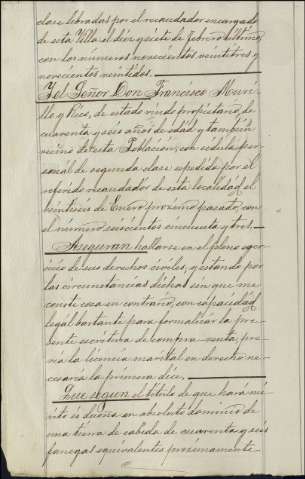 clase libradas por el recaudador encargado
de esta Villa el diez y siete de Febrero último,
con los números novecientos veintitres y
novecientos veintidos.
Y el Señor Don Francisco Muri-
llo y Rico, de estado viudo propietario, de
cuarenta y seis años de edad y tambien
vecino de esta Poblacion, con cedula per-
sonal de segunda clase espedida por el
referido recaudador de esta localidad, el
veintiseis de Enero proximo pasado, con
el número seiscientos cincuenta y tres.
Aseguran hallarse en el pleno ejer-
cicio de sus derechos civiles, y estando por
las circunstancias dichas sin que me
conste cosa en contrario, con capacidad
legal bastante para formalizar la pre-
sente escritura de compra-venta, pre-
via la licencia marital en derecho ne-
cesaria la primera dice,
Que segun el titulo de que hará mé-
rito es dueña en absoluto dominio de
una tierra de cabida de cuarenta y seis
fanegas equivalentes proximamente